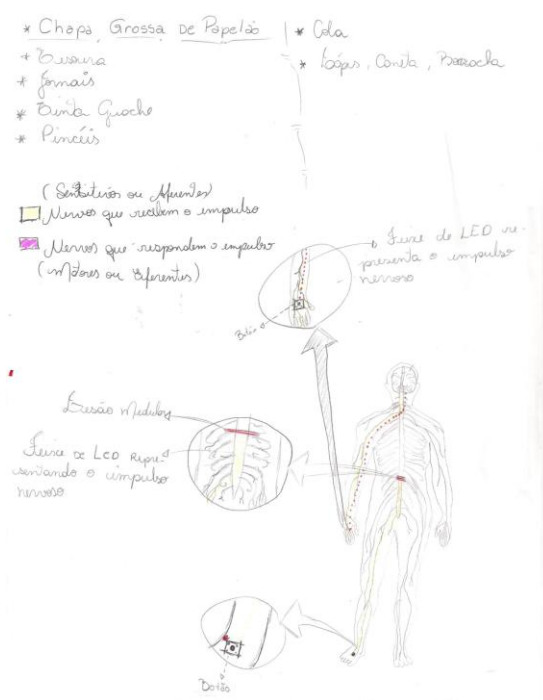 * Chapa Grossa De Papelão
* Tesoura
* Jornais
* Tinta Guache
* Pincéis
* Cola
* Lápis, Caneta, Borracha
(Sensitivos ou Aferentes)
Nervos que recebem o impulso
Nervos que respondem o impulso
(Motores ou Eferentes)
Feixe de LED re-
presenta o impulso
nervoso
Botão
Lesão Medular
Feixe de LED Repre-
sentando o impulso
nervoso
Botão